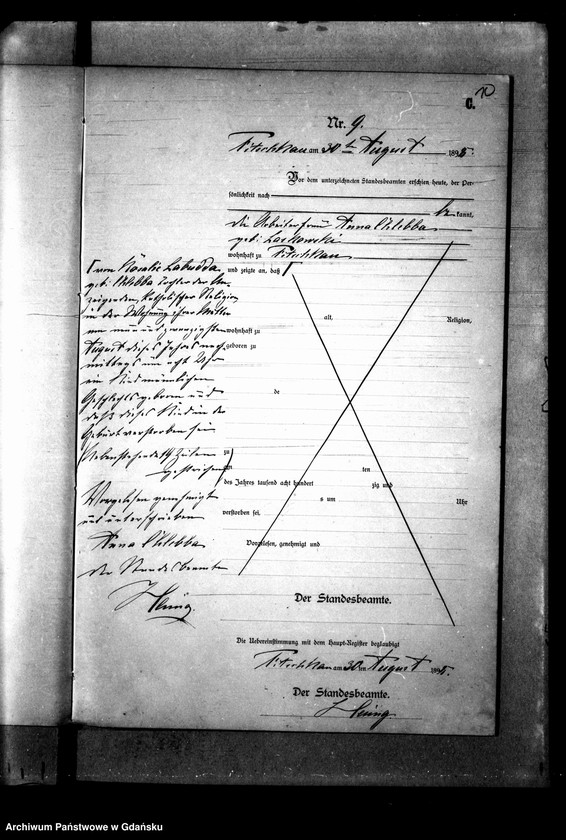 10
C.
Nr. 9.
am 30ten August 189
Vor dem unterzeichneten Standesbeamten erschien heute, der Per-
sönlichkeit nach
be kannt,
die Arbeiterfrau Anna Chlebba
geb: Laskowski
wohnhaft zu
und zeigte an, daß
von Labudda
geb: Chlebba Tochter der An-
zeigenden, katholischer Religion
in der Wohnung ihrer Mutter
am neunundzwanzigsten
August dieses Jahres nach-
mittags um acht Uhr
ein Kind männlichen
Geschlechts geboren und
daß dieses Kind in der
Geburt verstorben sei
Nebenstehende Zeilen
gestrichen
Vorgelesen genehmigt
und unterschrieben
Anna Chlebba
der Standesbeamte
alt, Religion,
wohnhaft zu
geboren zu
de
zu
am ten
des Jahres tausend acht hundert zig und
s um Uhr
verstorben sei.
Vorgelesen, genehmigt und
Der Standesbeamte.
Die Uebereinstimmung mit dem Haupt-Register beglaubigt
am 30ten August 189
Der Standesbeamte.
Archiwum Państwowe w Gdańsku